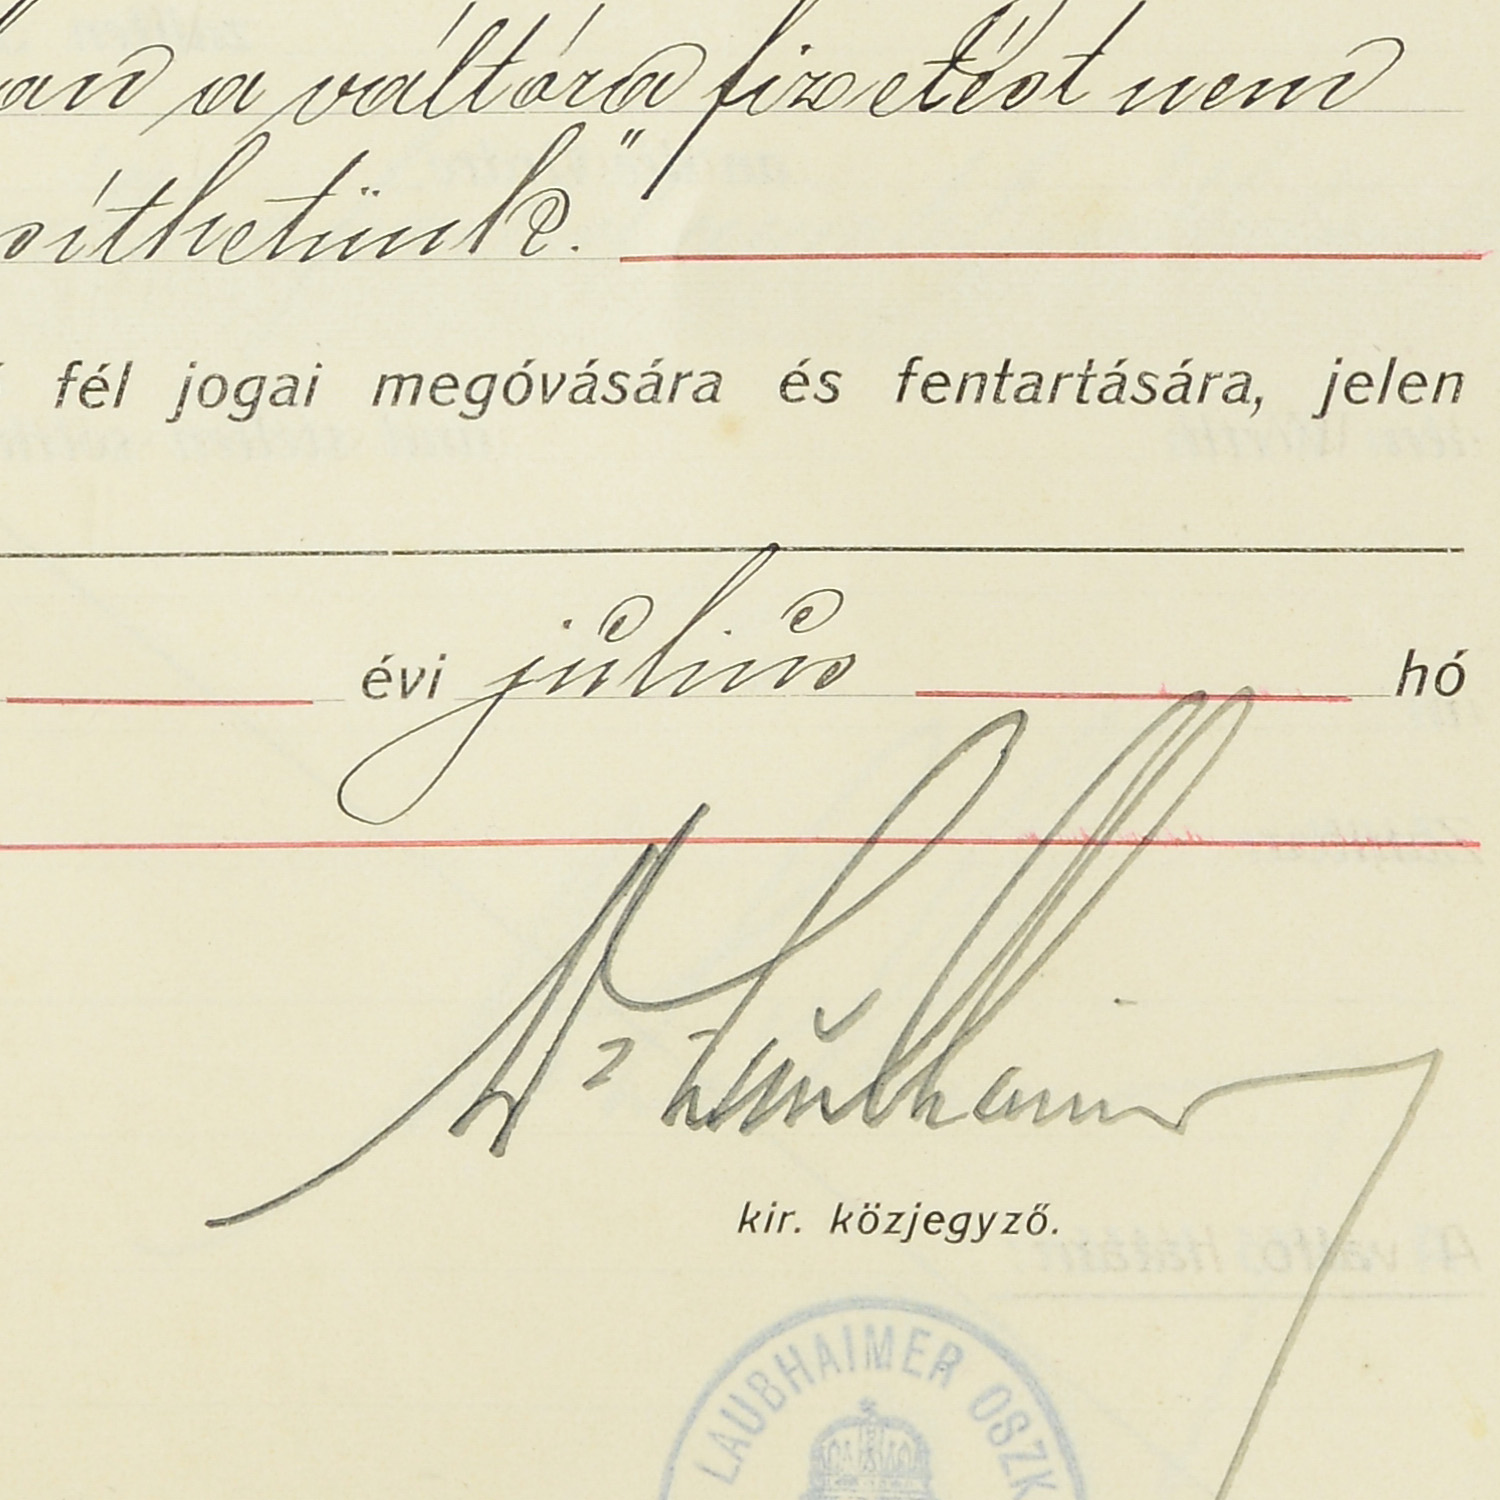 a váltóra fizetést nem
síthetünk."
fél jogai megóvására és fentartására, jelen
évi július hó
Dr Laubhaimer
kir. közjegyző.
LAUBHAIMER OSZK